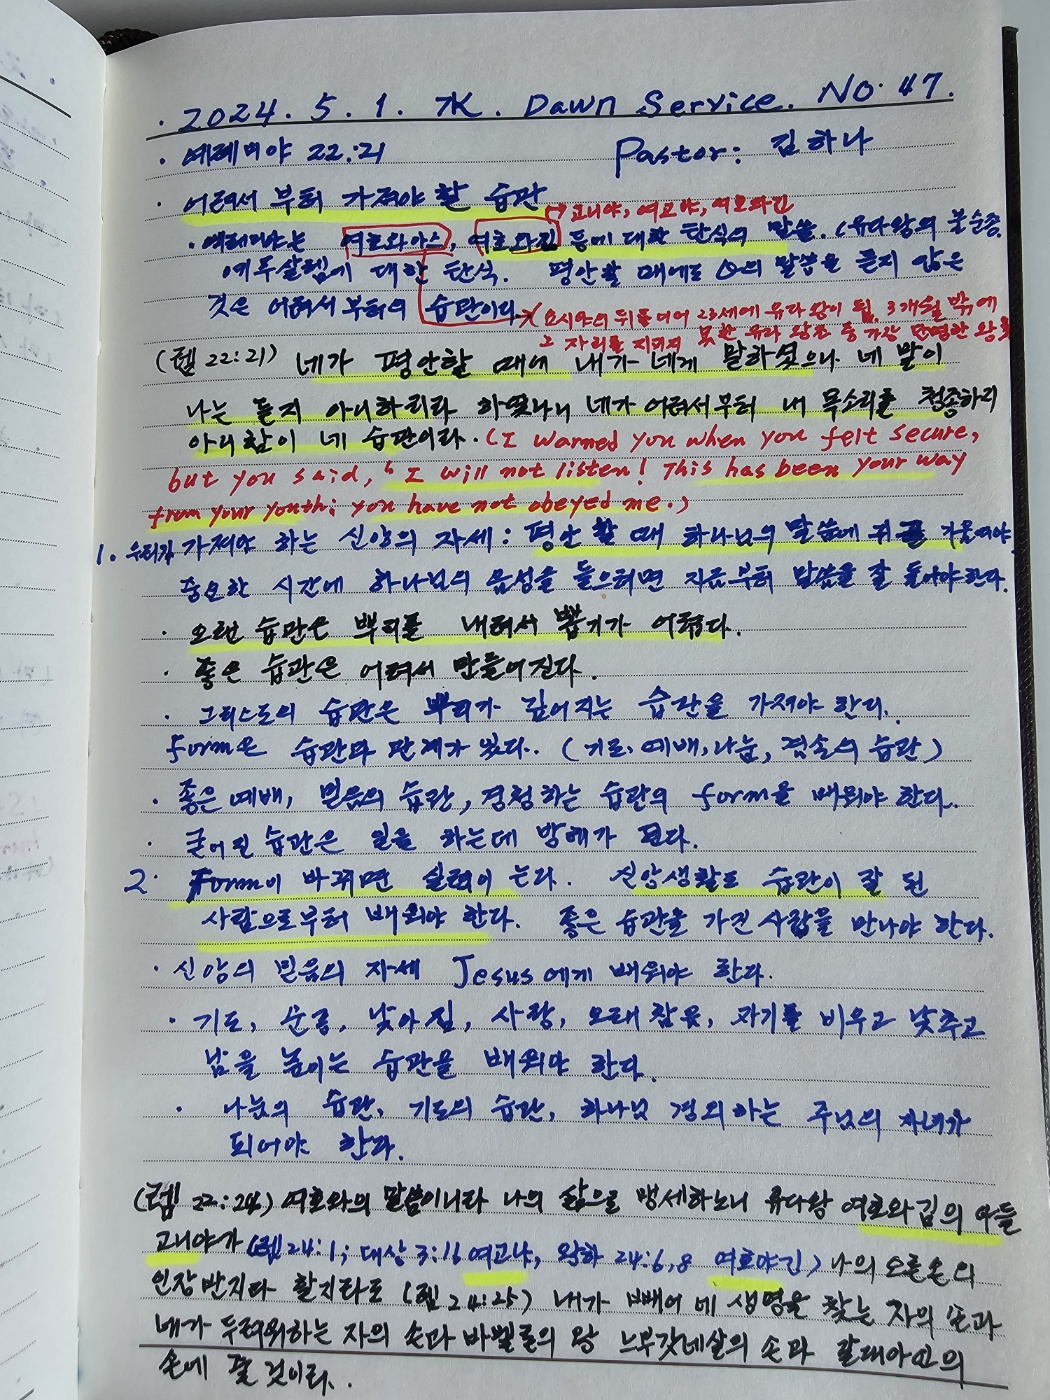 · 2024. 5. 1. 水. Dawn Service. No. 47.
· 예레미야 22:21 Pastor: 김하나
· 어려서 부터 가져야 할 습관
고니야, 여고냐, 여호와긴
· 예레미야는 여호와아스, 여호와김 등에 대한 탄식의 말씀. (유다왕의 불순종,
예루살렘에 대한 탄식. 평안할 때에도 의 말씀을 듣지 않은
것은 어려서 부터의 습관이다. 요시야의 뒤를 이어 23세에 유다 왕이 됨. 3개월 밖에
그 자리를 지키지 못한 유다 왕조 중 가장 단명한 왕
(렘 22:21) 네가 평안할 때에 내가 네게 말하였으나 네 말이
나는 듣지 아니하리라 하였나니 네가 어려서부터 내 목소리를 청종하지
아니함이 네 습관이라. (I warned you when you felt secure,
but you said, "I will not listen! This has been your way
from your youth; you have not obeyed me.)
1. 우리가 가져야 하는 신앙의 자세: 평안 할 때 하나님의 말씀에 귀를 기울여야
중요한 시간에 하나님의 음성을 들으려면 지금부터 말씀을 잘 들어야한다.
· 오랜 습관은 뿌리를 내려서 뽑기가 어렵다.
· 좋은 습관은 어려서 만들어진다.
· 그리스도의 습관은 뿌리가 깊어지는 습관을 가져야 한다.
Form은 습관과 관계가 있다. (기도, 예배, 나눔, 겸손의 습관)
· 좋은 예배, 믿음의 습관, 경청하는 습관의 form을 배워야 한다.
· 굳어진 습관은 일을 하는데 방해가 된다.
2. Form이 바뀌면 실력이 는다. 신앙생활도 습관이 잘 된
사람으로부터 배워야 한다. 좋은 습관을 가진 사람을 만나야 한다.
· 신앙의 믿음의 자세 Jesus에게 배워야 한다.
· 기도, 순종, 낮아짐, 사랑, 오래참음, 자기를 비우고 낮추고
남을 높이는 습관을 배워야 한다.
· 나눔의 습관, 기도의 습관, 하나님 경외하는 주님의 자녀가
되어야 한다.
(렘 22:24) 여호와의 말씀이니라 나의 삶으로 맹세하노니 유다왕 여호와김의 아들
고니야가 (렘 24:1; 대상 3:16 여고냐, 왕하 24:6,8 여호야긴) 나의 오른손의
인장반지라 할지라도 (렘 24:25) 내가 빼어 네 생명을 찾는 자의 손과
네가 두려워하는 자의 손과 바벨론의 왕 느부갓네살의 손과 갈대아인의
손에 줄 것이라.